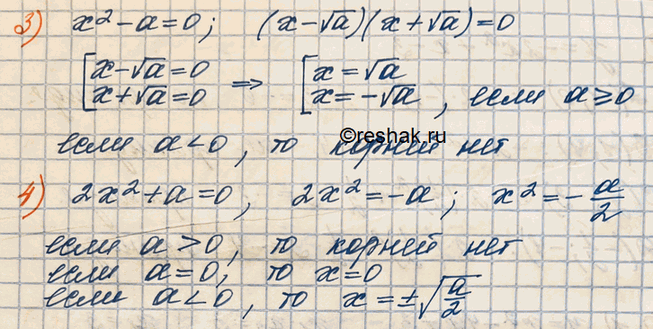 3) x² - a = 0; (x - √a)(x + √a) = 0
[x - √a = 0 ⇒ [x = √a
x + √a = 0 x = -√a, если a ≥ 0
©reshak.ru
если a < 0, то корней нет
4) 2x² + a = 0, 2x² = -a; x² = -a/2
если a > 0, то корней нет
если a = 0, то x = 0
если a < 0, то x = ±√a/2